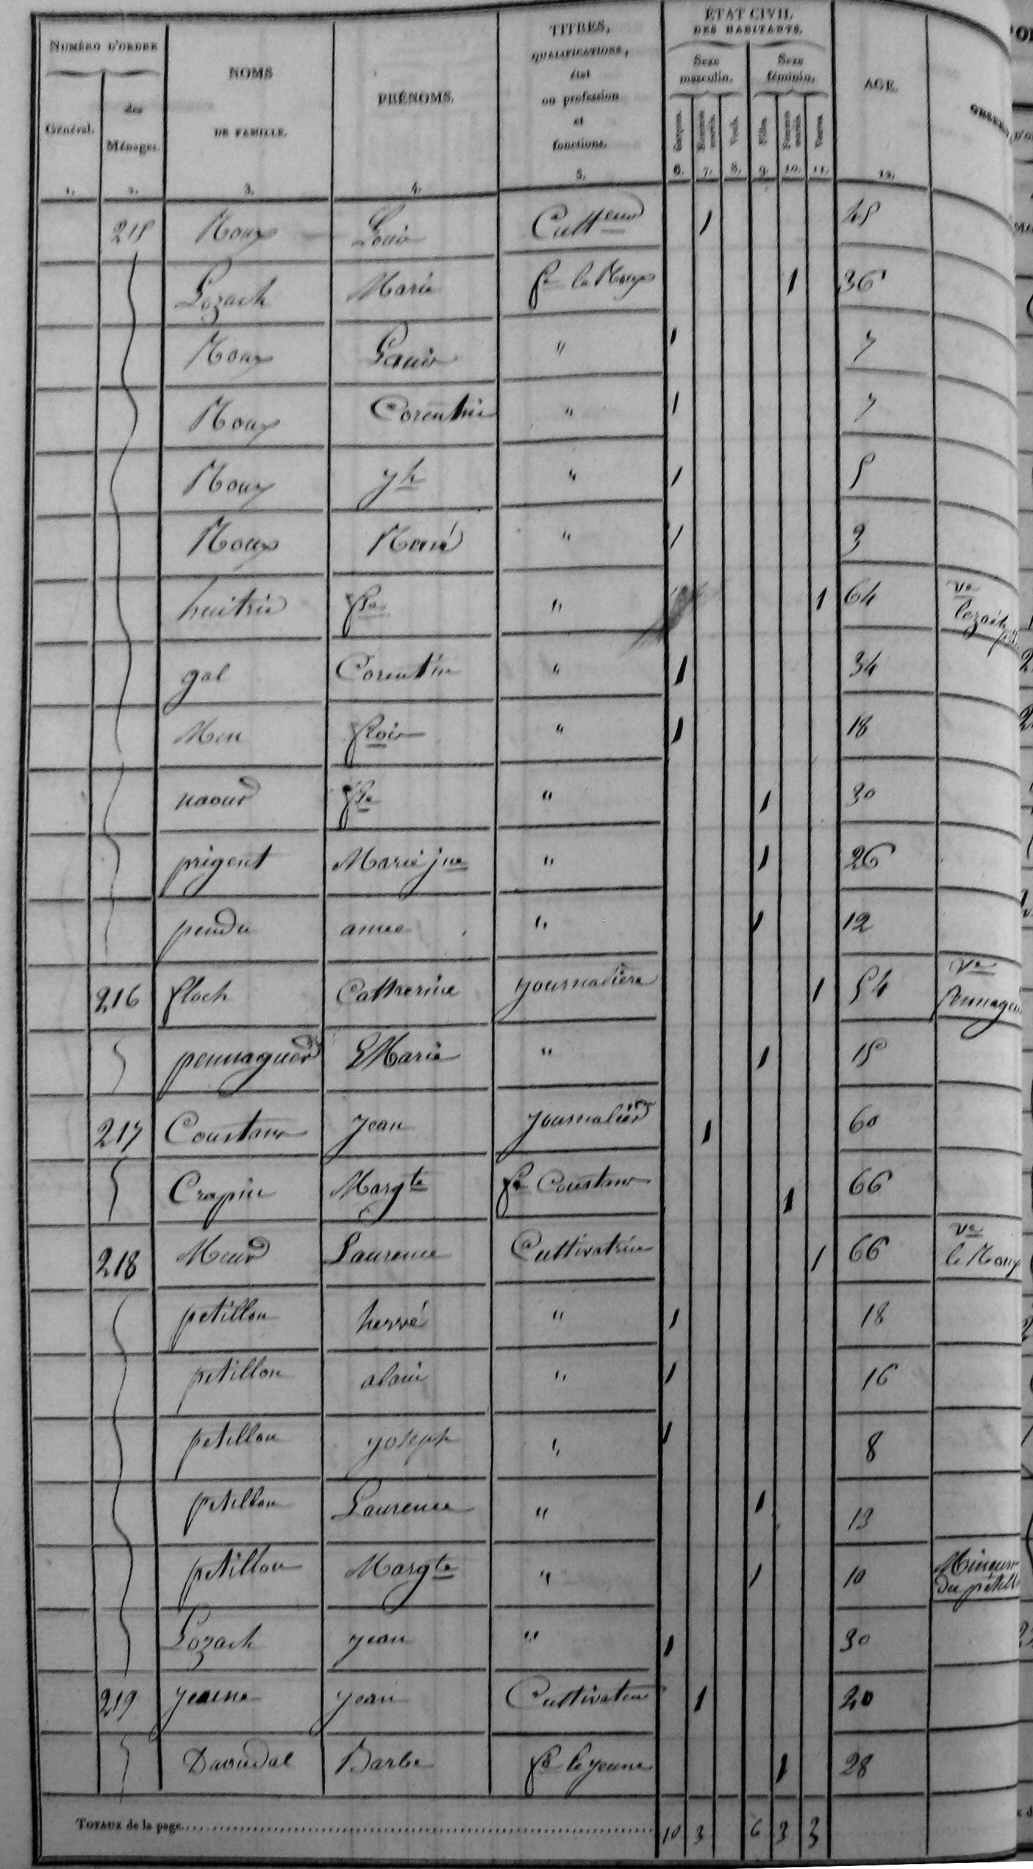 NUMÉRO D'ORDRE
Général.
des Ménages.
NOMS DE FAMILLE.
PRÉNOMS.
TITRES, QUALIFICATIONS, état ou profession et fonctions.
ÉTAT CIVIL DES HABITANTS.
Sexe masculin.
Sexe féminin.
Garçons. Hommes mariés. Veufs. Filles. Femmes mariées. Veuves.
AGE.
1. 2. 3. 4. 5. 6. 7. 8. 9. 10. 11. 12.
215 Roux Louis Cult eur 1 45
Lozach Marie fe le Roux 1 36
Roux Louis " 1 7
Roux Corentin " 1 7
Roux yh " 1 5
Roux René " 1 3
huitrie fse " 1 64 Ve Lozach
gal Corentin " 1 34
Men frois " 1 18
naour fse " 1 30
prigent Marie jne " 1 26
pendu anne " 1 12
216 floch Catherine journalière 1 54 Ve
pennaguer Marie " 1 15
217 Coustans jean journalier 1 60
Crapin Margte fe Coustans 1 66
218 Meur Laurence Cultivatrice 1 66 Ve le Roux
petillon hervé " 1 18
petillon alain " 1 16
petillon joseph " 1 8
petillon Laurence " 1 13
petillon Margte " 1 10 Mineurs du petill
Lozach jean " 1 30
219 jeune jean Cultivateur 1 20
Daoudal Barbe fe le jeune 1 28
TOTAUX de la page 10 3 6 3 3